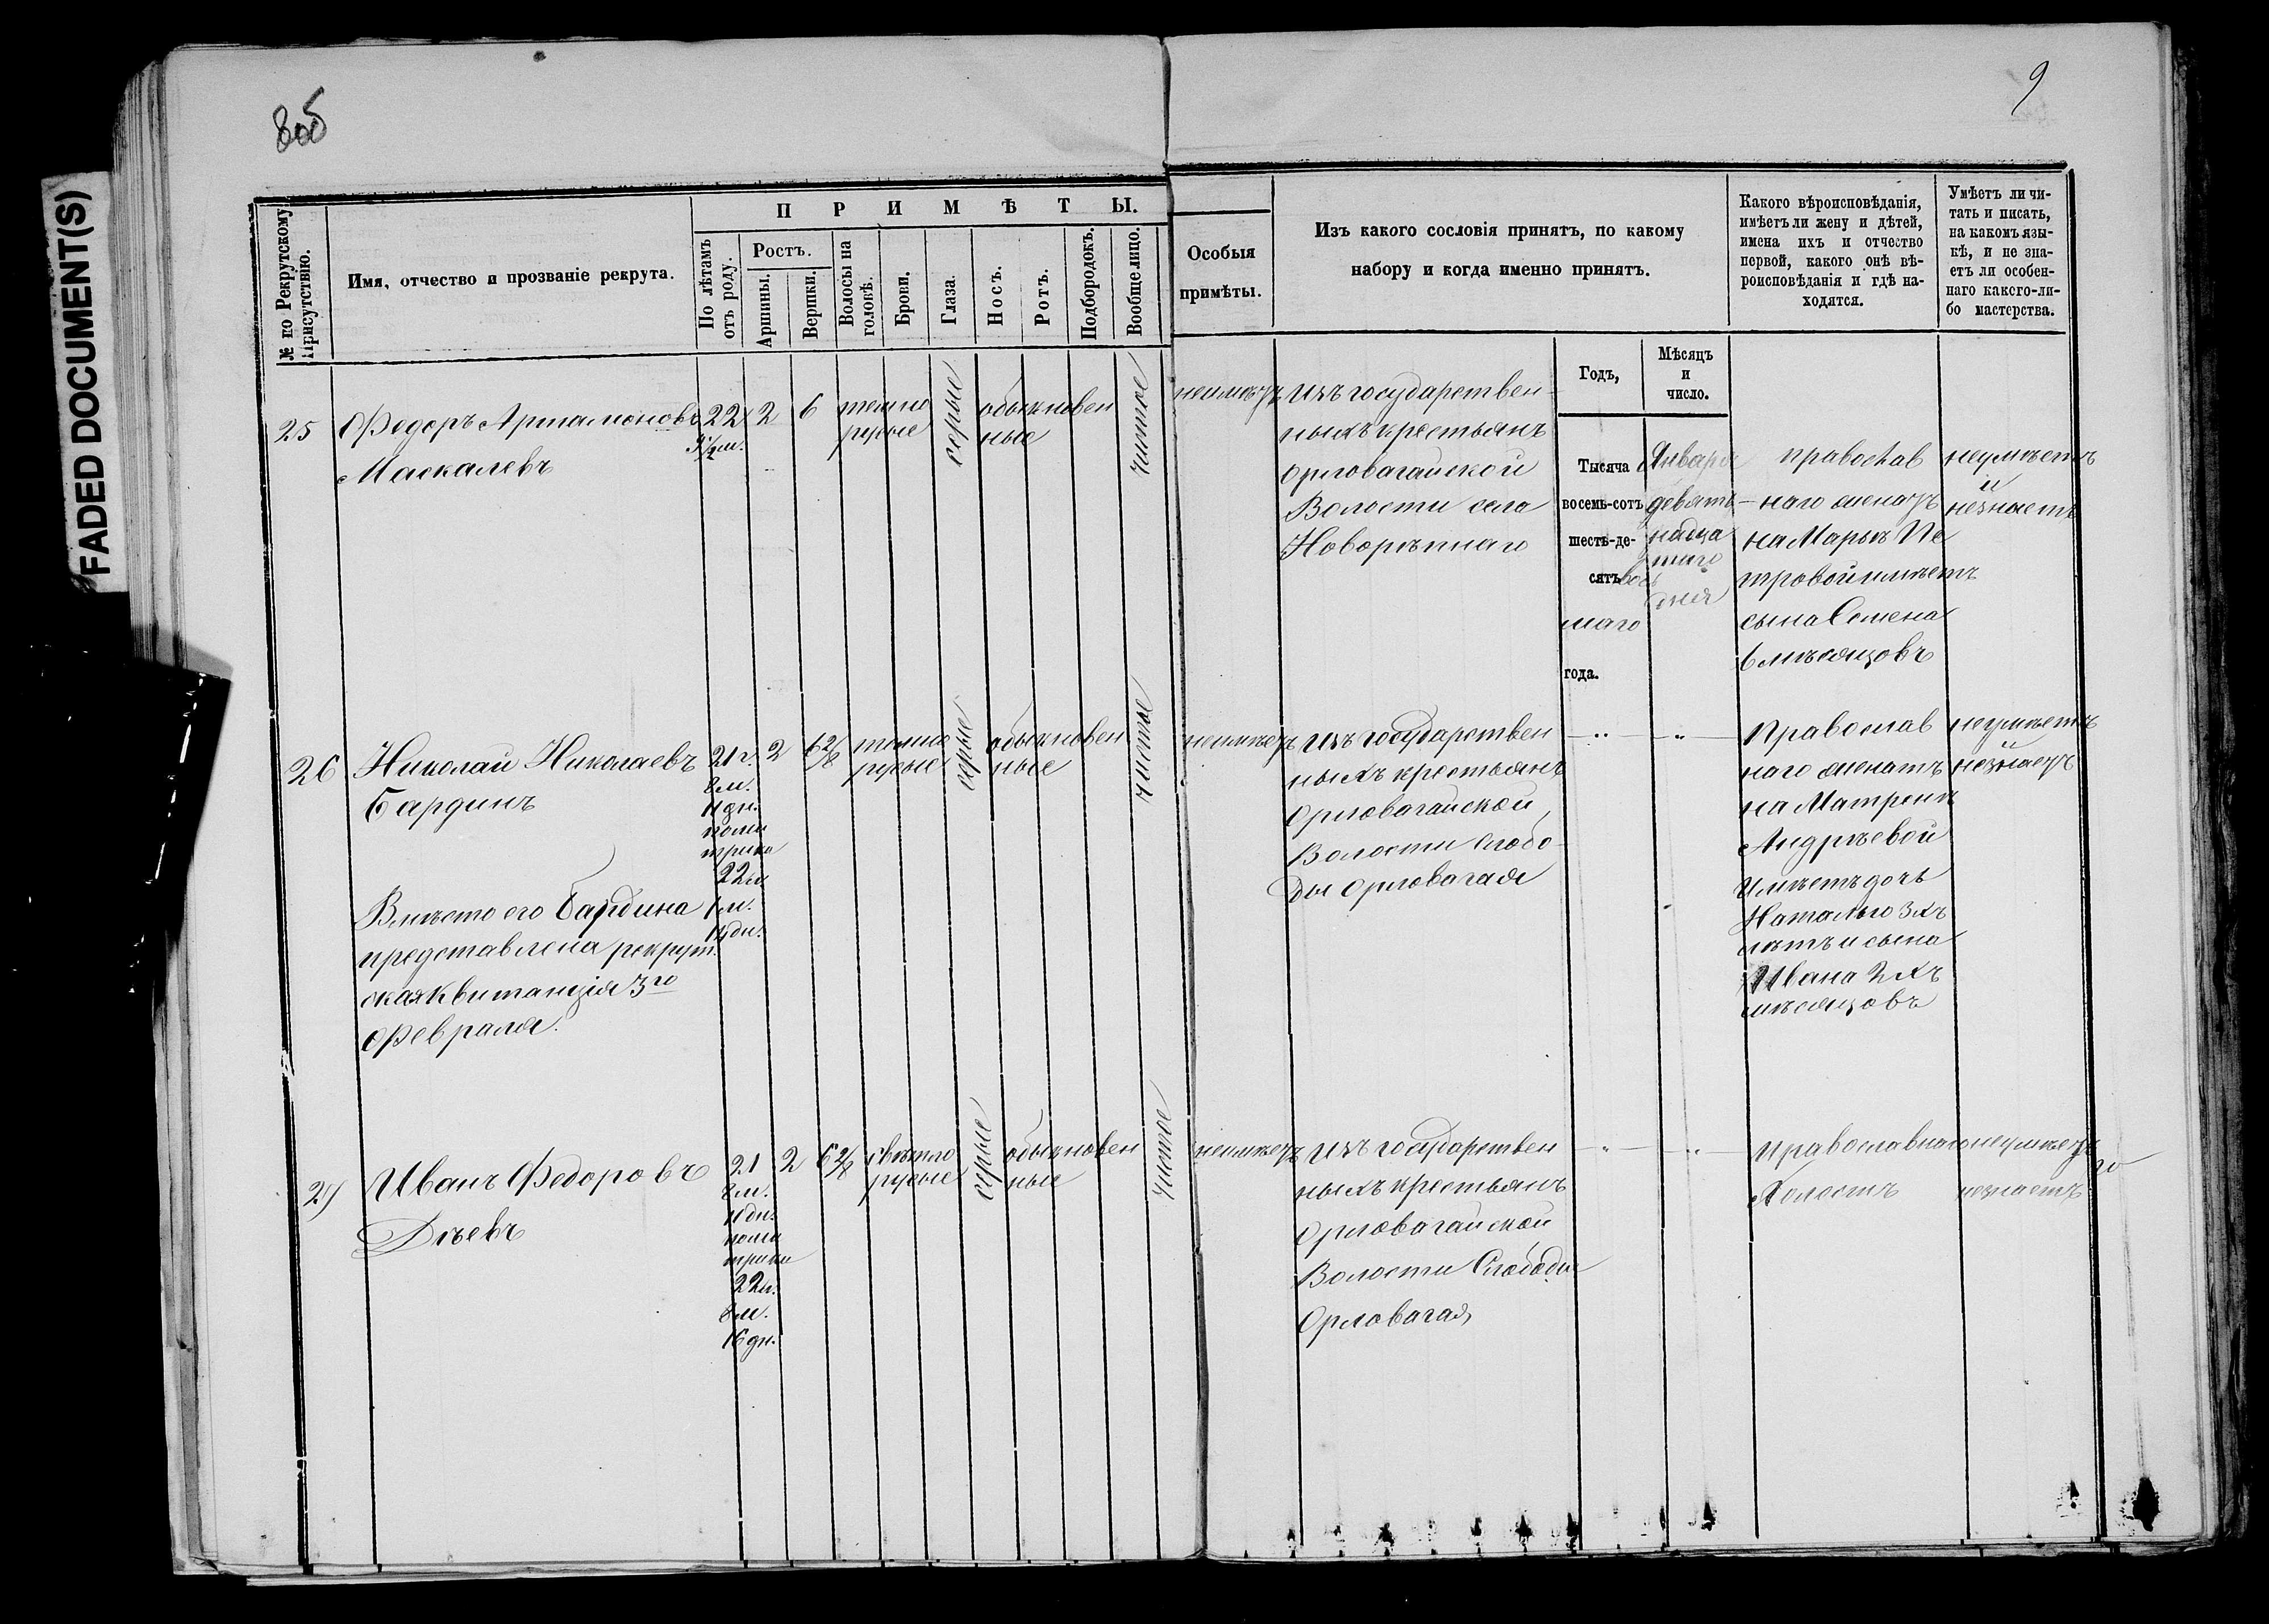 FADED DOCUMENT(S)
8об
9
№ по Рекрутскому Присутствію.
Имя, отчество и прозваніе рекрута.
ПРИМѢТЫ.
По лѣтамъ отъ роду.
Ростъ.
Аршины.
Вершки.
Волосы на головѣ.
Брови.
Глаза.
Носъ.
Ротъ.
Подбородокъ.
Вообще лицо.
Особыя
примѣты.
Изъ какого сословія принятъ, по какому
набору и когда именно принятъ.
Какого вѣроисповѣданія,
имѣетъ ли жену и дѣтей,
имена ихъ и отчество
первой, какого онѣ вѣ-
роисповѣданія и гдѣ на-
ходятся.
Умѣетъ ли чи-
тать и писать,
на какомъ язы-
кѣ, и не зна-
етъ ли особен-
наго какого-ли-
бо мастерства.
Годъ,
Мѣсяцъ
и
число.
25
Федоръ Артамоновъ
Маскалевъ
22
2
6
темно
русые
серые
обыкновен
ные
чистое
неимѣетъ
Изъ государствен-
ныхъ крестьянъ
Орловагайской
Волости села
Новорѣпнаго
Тысяча
восемь-сотъ
шесть-де-
сятъ вось
маго
года.
Января
девят-
надца
таго
дня
православ
-наго женатъ
на Марьѣ Пе
тровой имѣетъ
сына Семена
6 мѣсяцовъ
неумѣетъ
и
незнаетъ
26
Николай Николаевъ
Бардинъ
21 г.
8 м.
11 дн.
поме
трике
22 л.
1 м.
14 дн.
2
6 2/8
темно
русые
серые
обыкновен
ные
чистое
Вмѣсто его Бардина
представлена рекрут.
ская Квитанція 3го
Февраля.
неимѣетъ
Изъ государствен
ныхъ крестьянъ
Орловагайской
Волости Слобо-
ды Орловагая
— „ — „ —
Православ
наго женатъ
на Матренѣ
Андрѣевой
Имѣетъ дочь
Наталью 3хъ
лѣтъ и сына
Ивана 2хъ
мѣсяцовъ
неумѣетъ
и
незнаетъ
27
Иванъ Федоровъ
Дѣевъ
21
8 м.
11 дн.
поме
трики
22 л.
8 м.
16 дн.
2
6 2/8
свѣтло
русые
серые
обыкновен
ные
чистое
неимѣетъ
Изъ государствен
ныхъ крестьянъ
Орловагайской
Волости Слободы
Орловагая
— „ — „ —
православнаго
Холостъ
неумѣетъ
незнаетъ